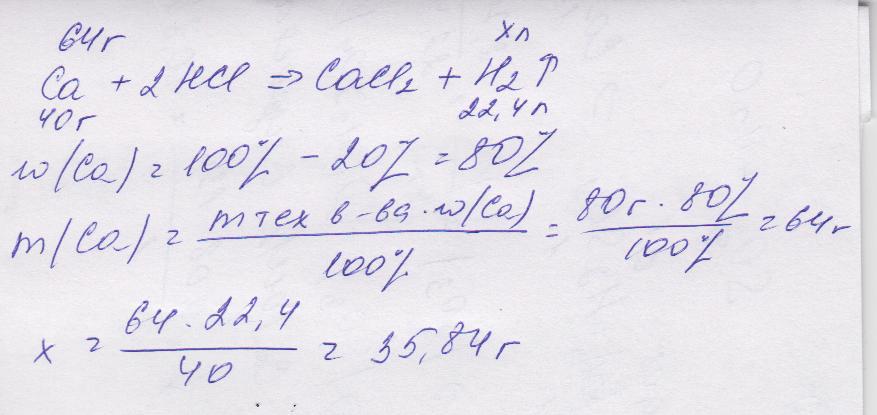 64г хл
Ca + 2HCl => CaCl2 + H2↑
40г 22,4л
w(Ca) = 100% - 20% = 80%
m(Ca) = m тех в-ва · w(Ca) / 100% = 80г · 80% / 100% = 64г
x = 64 · 22,4 / 40 = 35,84г